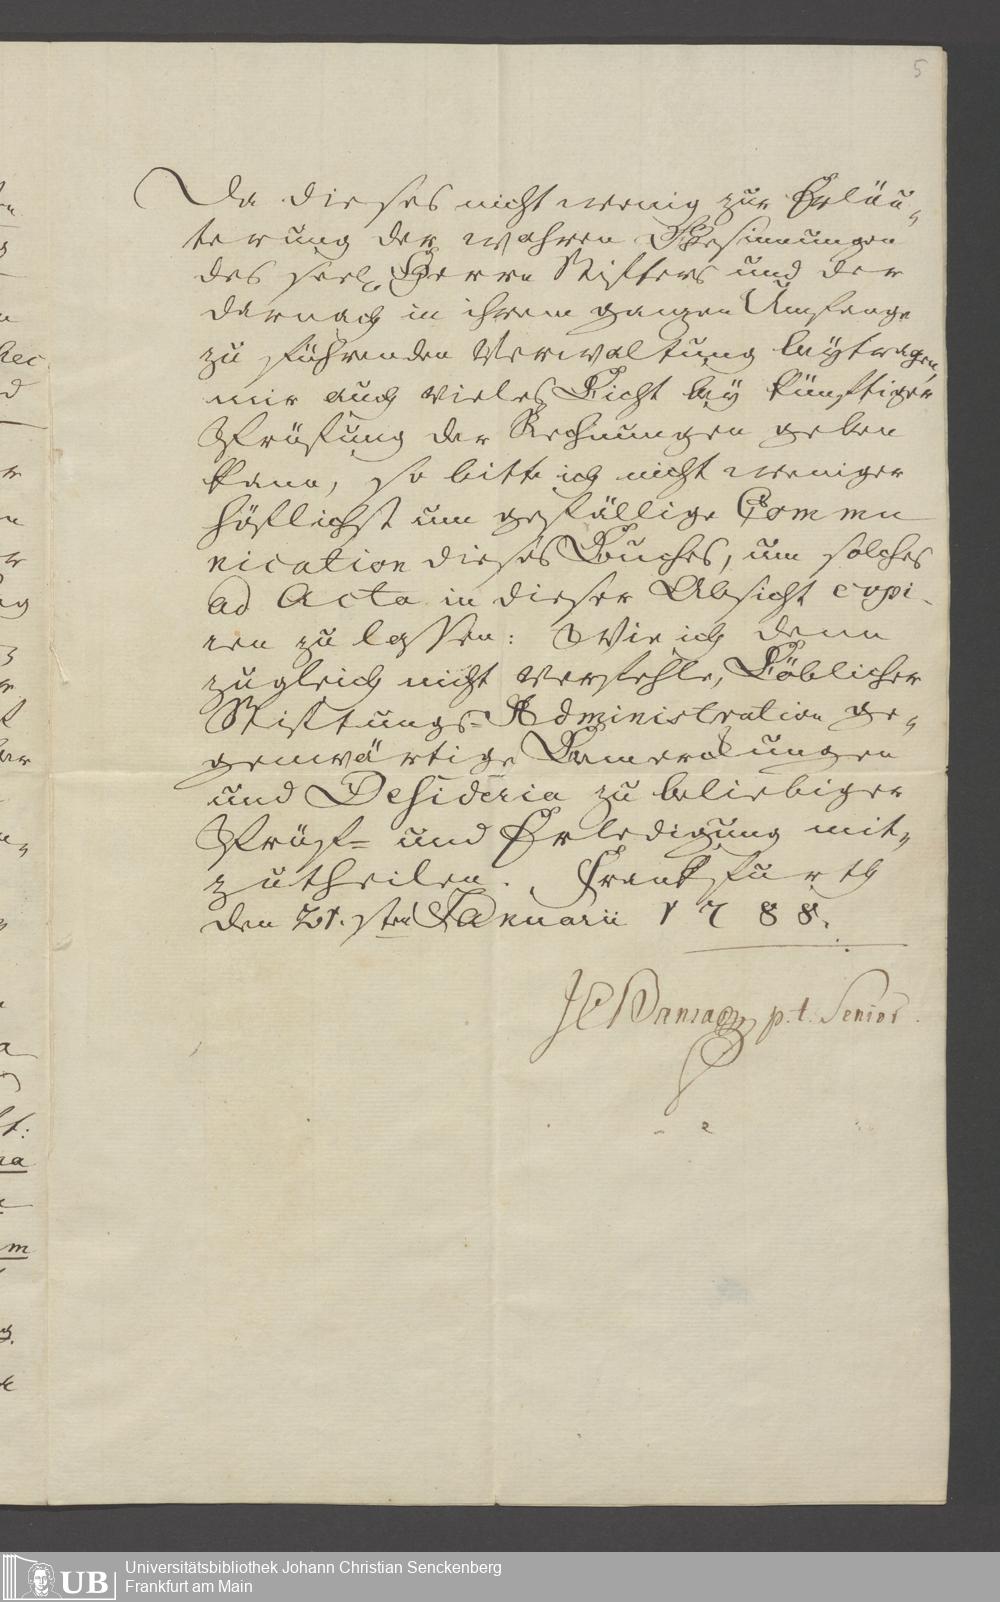 5
Da dieses nicht wenig zur Erläu-
terung der wahren Gesinnungen
des seel. Herrn Stifters und der
darnach in ihrem ganzen Umfange
zu führenden Verwaltung beytragen,
mir auch vieles Licht bey künftiger
Prüfung der Rechnungen geben
kann, so bitte ich nicht weniger
höflichst um gefällige Commu
nication dieses Buches, um solches
ad Acta in dieser Absicht copi-
ren zu lassen: Wie ich denn
zugleich nicht verfehle, Löblicher
Stiftungs-Administration ge-
genwärtige Bemerkungen
und Desideria zu beliebiger
Prüf- und Erledigung mit-
zutheilen. Frankfurth
den 21.sten Januarii 1788.
p.t. Senior.
Universitätsbibliothek Johann Christian Senckenberg
Frankfurt am Main
UB